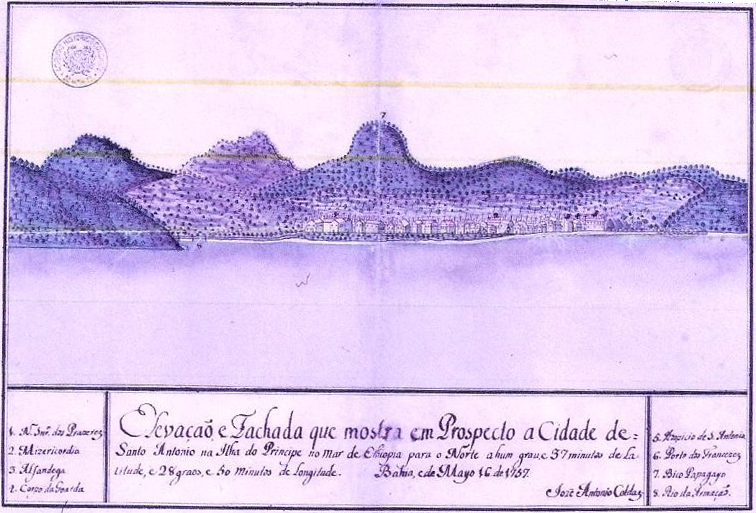 7
Elevação, e Fachada que mostra em Prospecto a Cidade de=
Santo Antonio na Ilha do Principe no mar de Ethiopia para o Norte a hum grau, e 37 minutos de La-
titude, e 28 graos, e 50 minutos de Longitude. Bahia, e de Mayo 16 de 1757.
Joze Antonio Caldas
1. N. Snrª. dos Prazeres
2. Mizericordia
3. Alfandega
4. Corpo da Guarda
5. Hospicio de S. Antonio
6. Porto dos Francezes
7. Bico Papagayo
8. Rio da Armação